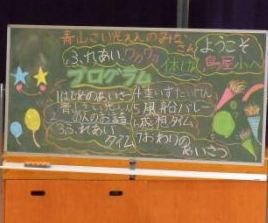 青山さいせんのみなさん ようこそ
ふれあいワクワク休み 鳥屋小へ
プログラム
1はじめのあいさつ
2
のお話
3ふれあいタイム
4車いすたいけん
5風船バレー
6感想タイム
7おわりのあいさつ